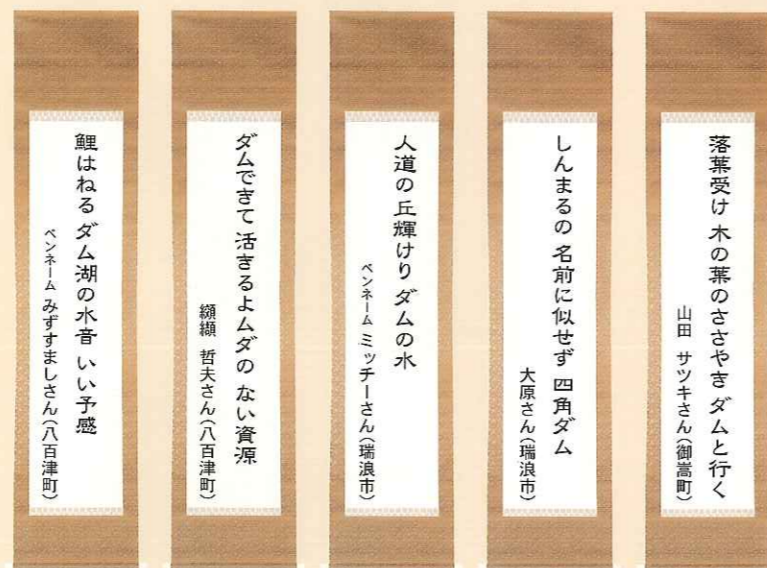 落葉受け 木の葉のささやき ダムと行く
山田 サツキさん(御嵩町)
しんまるの 名前に似せず 四角ダム
大原さん(瑞浪市)
人道の 丘輝けり ダムの水
ペンネーム ミッチーさん(瑞浪市)
ダムできて 活きるよムダの ない資源
纐纈 哲夫さん(八百津町)
鯉はねる ダム湖の水音 いい予感
ペンネーム みずすましさん(八百津町)